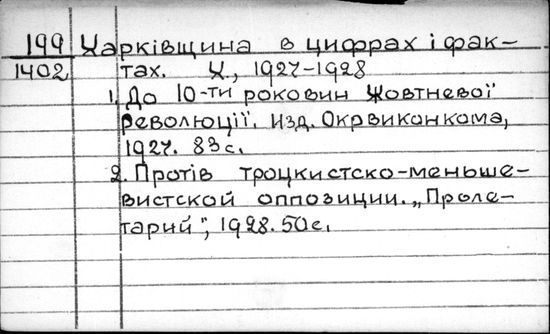 199 Харківщина в цифрах і фак-
1402 тах. Х., 1927-1928
1. До 10-ти роковин Жовтневої
революції. Изд. Окрвиконкома,
1927. 83с.
2. Протів троцкистско-меньше-
вистской оппозиции. „Проле-
тарий", 1928. 50с.